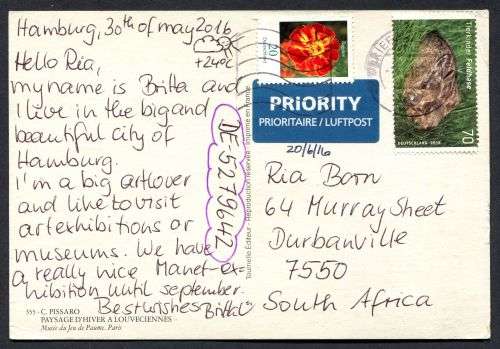 Hamburg, 30th of may 2016
+24°C
Hello Ria,
my name is Britta and
I live in the big and
beautiful city of
Hamburg.
I'm a big artlover
and like to visit
artexhibitions or
museums. We have
a really nice Manet-ex-
hibition until september.
Best wishes Britta
555 - C. PISSARO
PAYSAGE D'HIVER A LOUVECIENNES
Musée du Jeu de Paume, Paris
DE-5279642
Tournelle Éditeur - Reproduction réservée - Imprimé en
20
Deutschland
Tagetes
Tierkinder Feldhase
DEUTSCHLAND 2016
70
PRIORITY
PRIORITAIRE / LUFTPOST
20/6/16
Ria Born
64 Murray Sheet
Durbanville
7550
South Africa